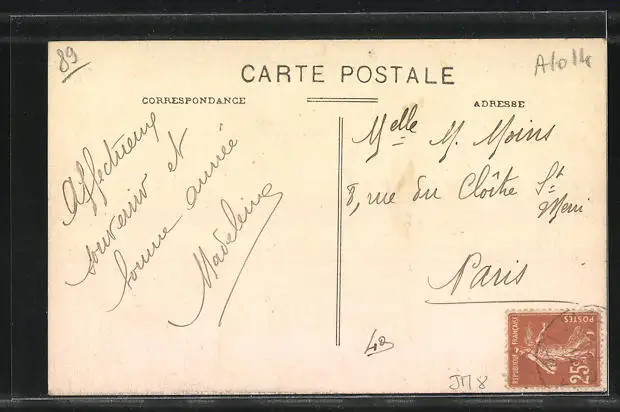 89
A1014
CARTE POSTALE
CORRESPONDANCE
ADRESSE
Affectueux
souvenir et
bonne année
Madeleine
Melle M. Moins
8, rue du Cloître St
Merri
Paris
JM 8
REPUBLIQUE FRANÇAISE
POSTES
25c